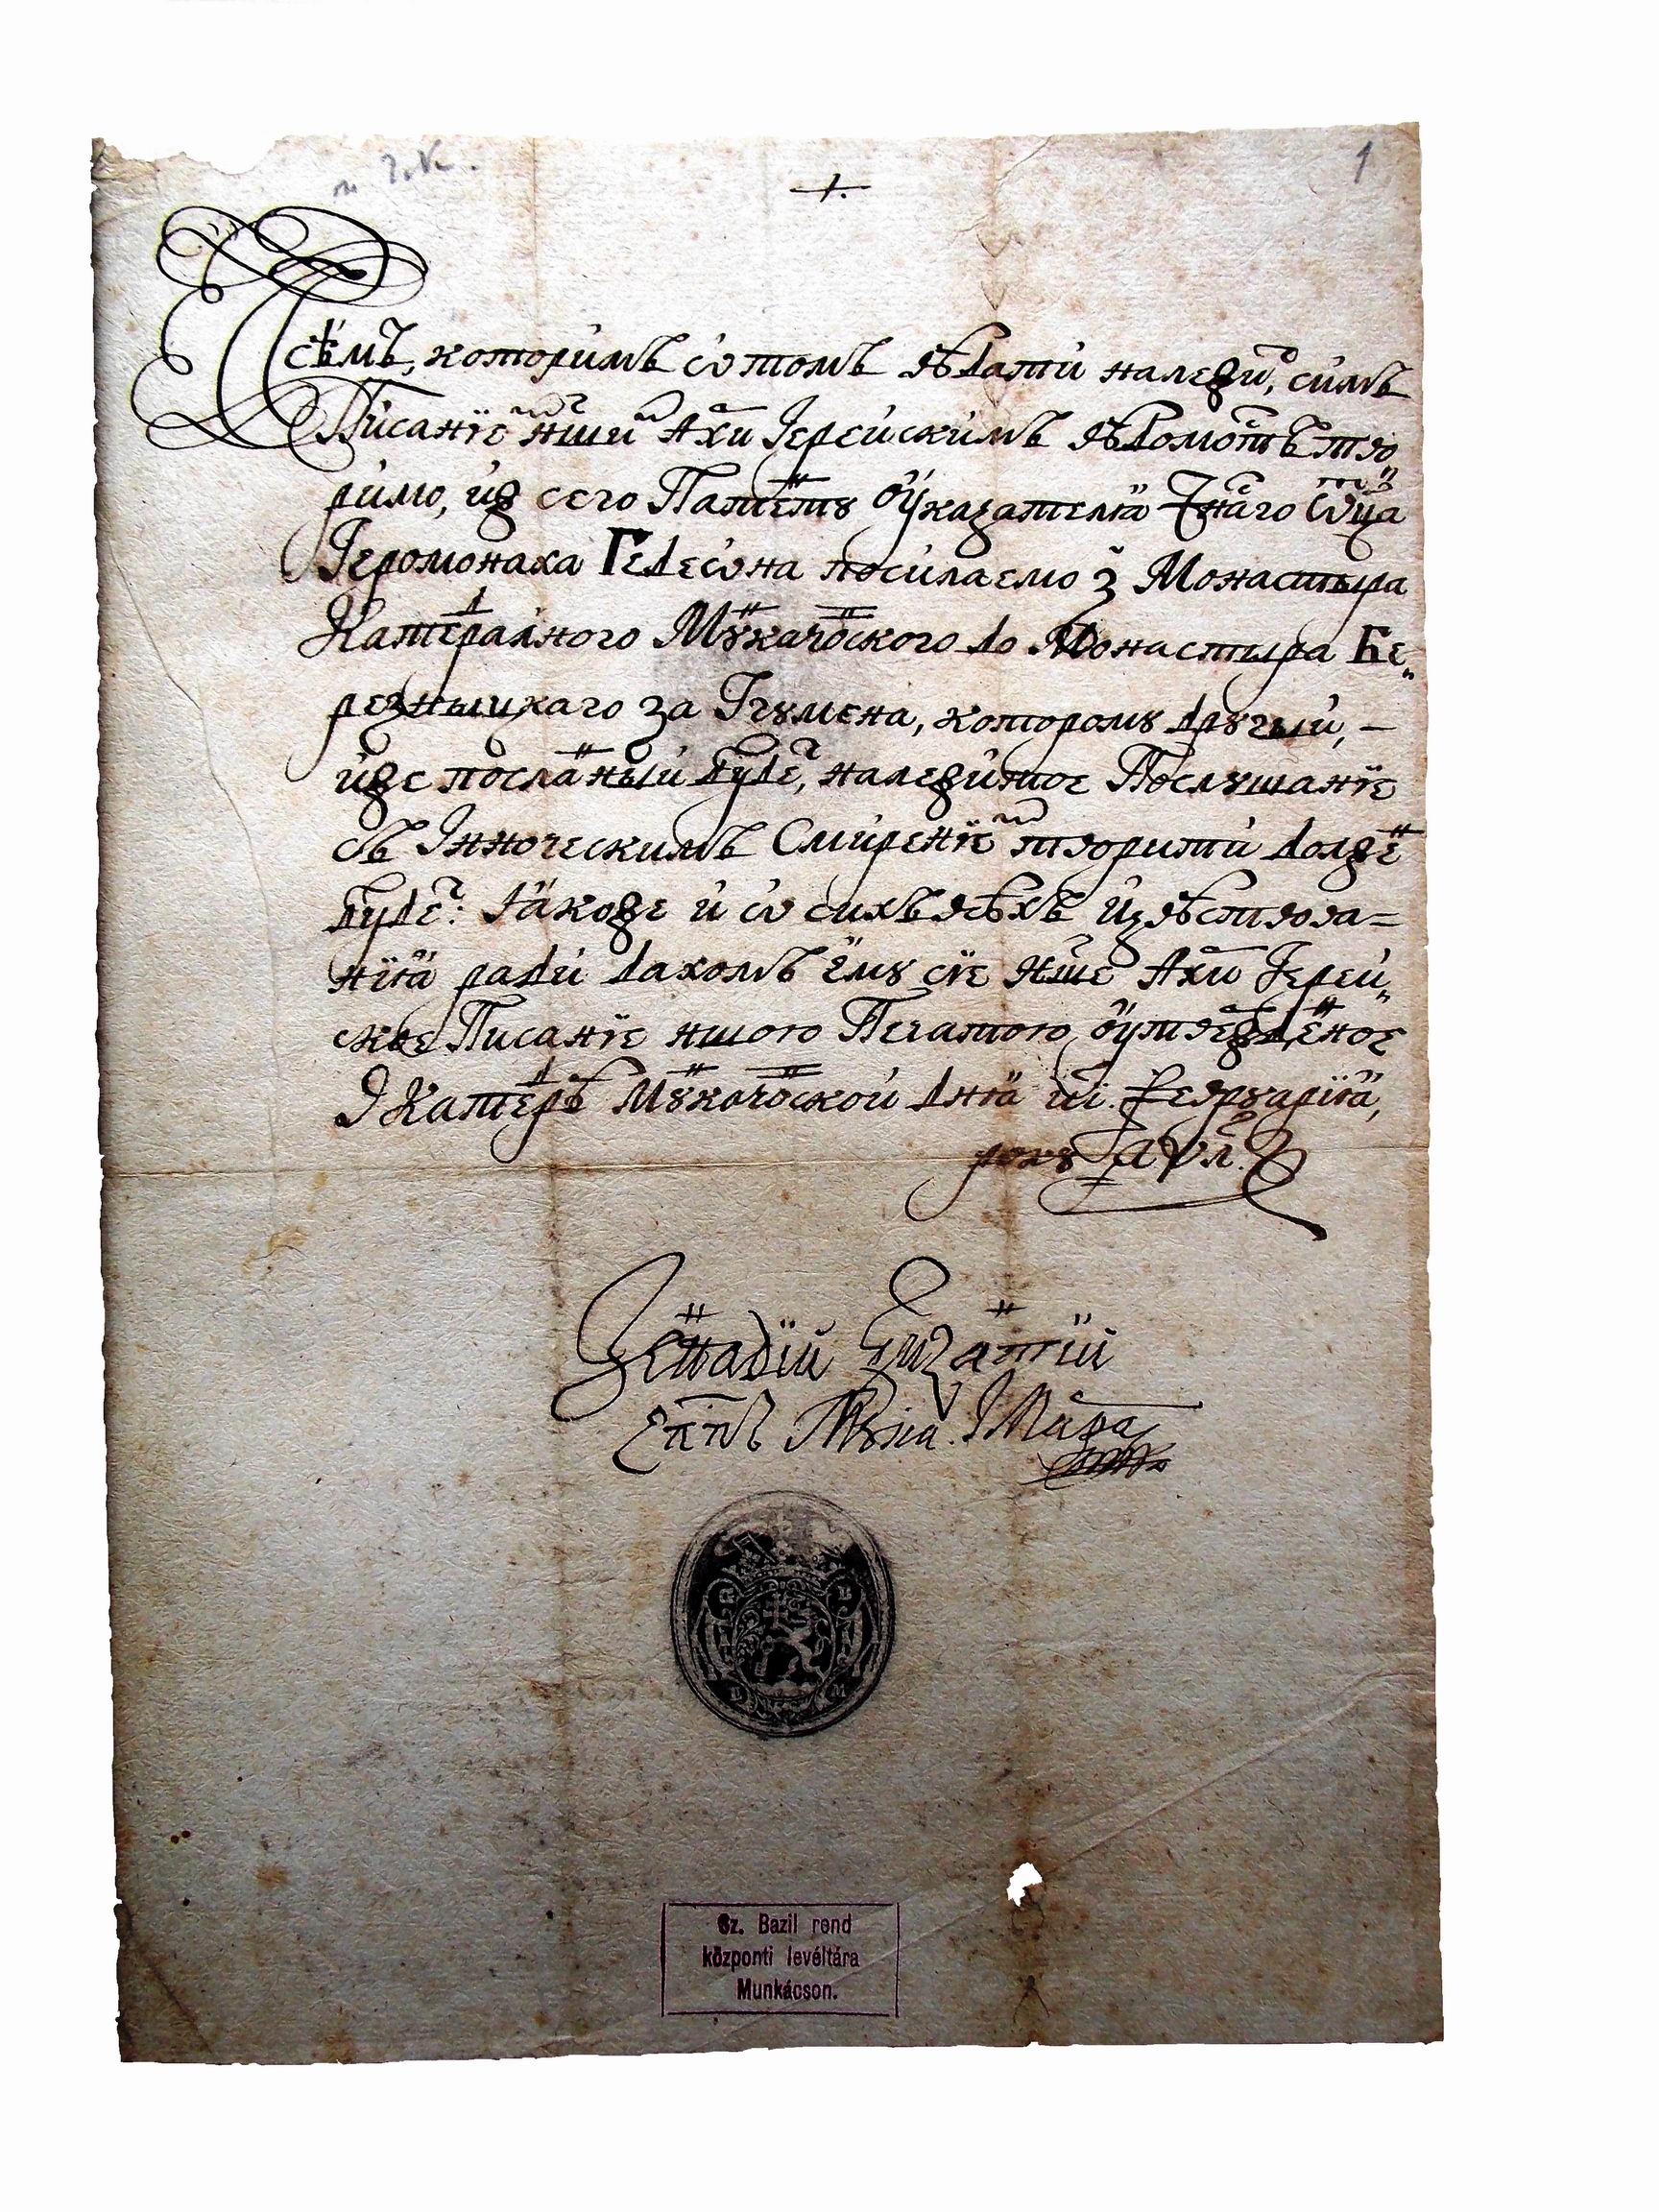 1
Всѣмъ, которимъ ѡ томъ вѣдати належит, симъ
Писанїемъ ншим Архи Іерейскимъ вѣдомостъ тво„
римо, иж сего Патенту Оуказателꙗ Чнаго Ѿца
Іеромонаха Гедеѡна посилаемо з Монастыра
Катедралного Мꙋкачовского до Монастыра Бе„
резныцкаго за Ігꙋмена, которомꙋ дрꙋгый, —
иже посланный будет, належитое Послꙋшанїе
съ Інноческимъ Смиренїем творити должен
будет: Ꙗкоже и ѡ сихъ всѣхъ Извѣствова=
нїꙗ ради дахомъ емꙋ сїе нше Архи Іерей„
ское Писанїе ншою Печатою оутвержденное
В Катедрѣ Мꙋкачовской днꙗ иі. Феврꙋарїꙗ,
рокꙋ ҂аѱл҃.
Геннадїй Бизанцїй
Епп҃ъ Мꙋка. І Мара
Sz. Bazil rend
központi levéltára
Munkácson.